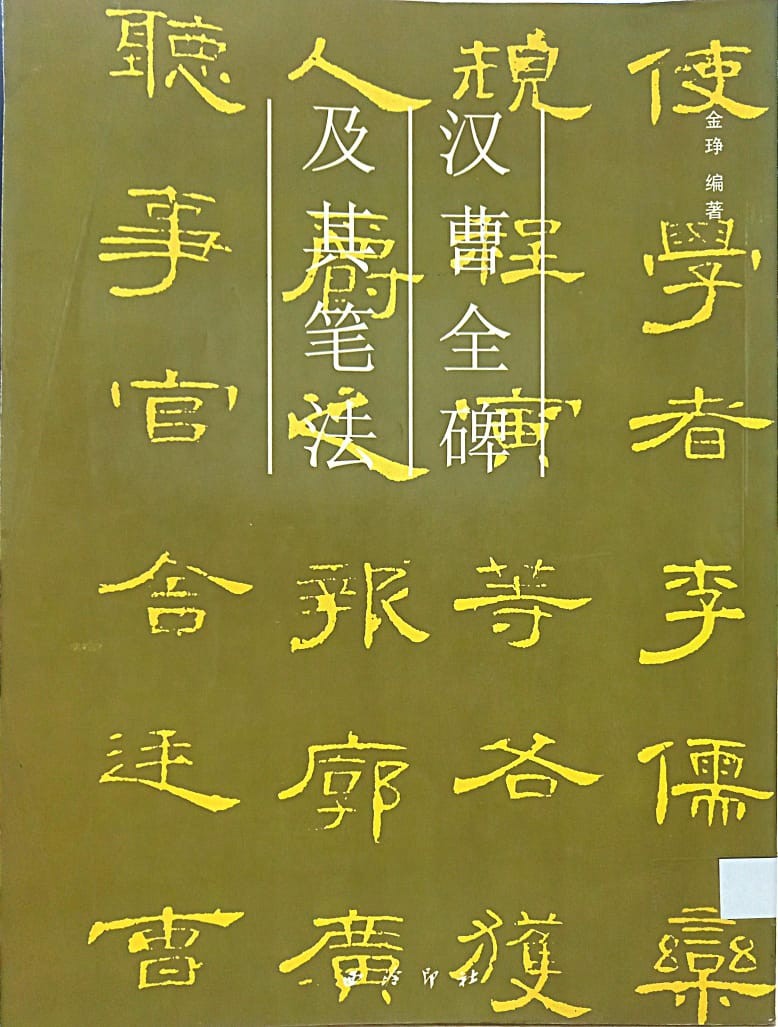 汉曹全碑
及其笔法
金琤 编著
使學者李儒欒
規程寅等各獲
人爵之報廓廣
聽事官舍廷曹
西泠印社